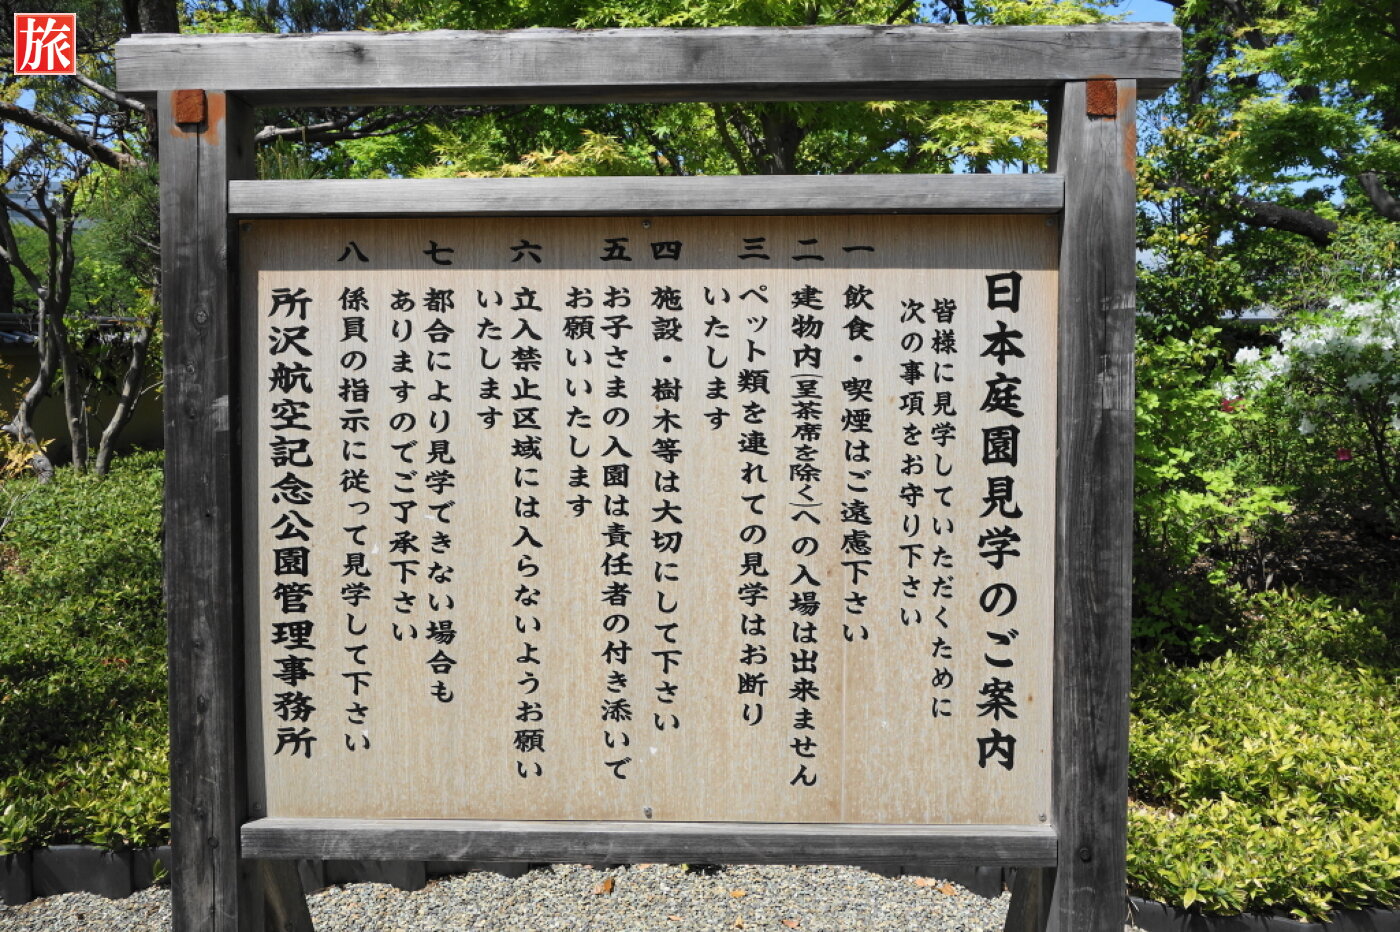 旅
日本庭園見学のご案内
皆様に見学していただくために
次の事項をお守り下さい
一 飲食・喫煙はご遠慮下さい
二 建物内(呈茶席を除く)への入場は出来ません
三 ペット類を連れての見学はお断り
いたします
四 施設・樹木等は大切にして下さい
五 お子さまの入園は責任者の付き添いで
お願いいたします
六 立入禁止区域には入らないようお願い
いたします
七 都合により見学できない場合も
ありますのでご了承下さい
八 係員の指示に従って見学して下さい
所沢航空記念公園管理事務所